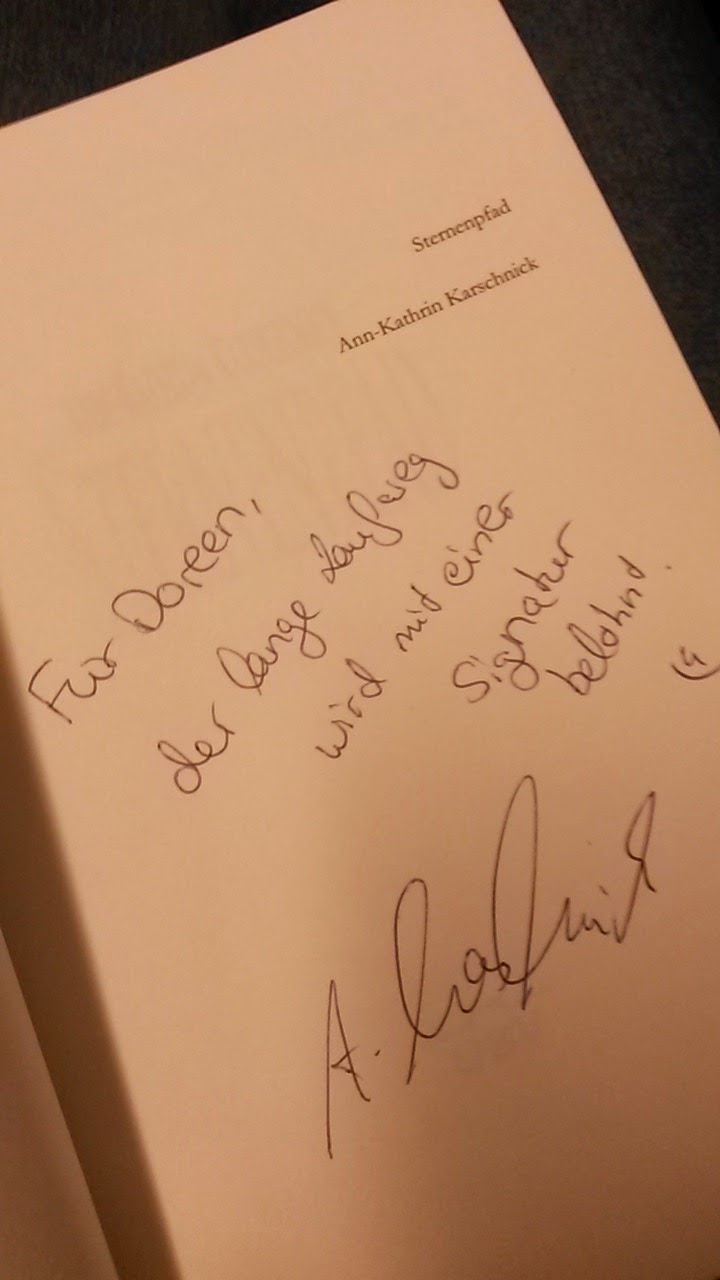 Sternenpfad
Ann-Kathrin Karschnick
Für Doreen,
der lange Laufweg
wird mit einer
Signatur
belohnt.
A. Karschnick